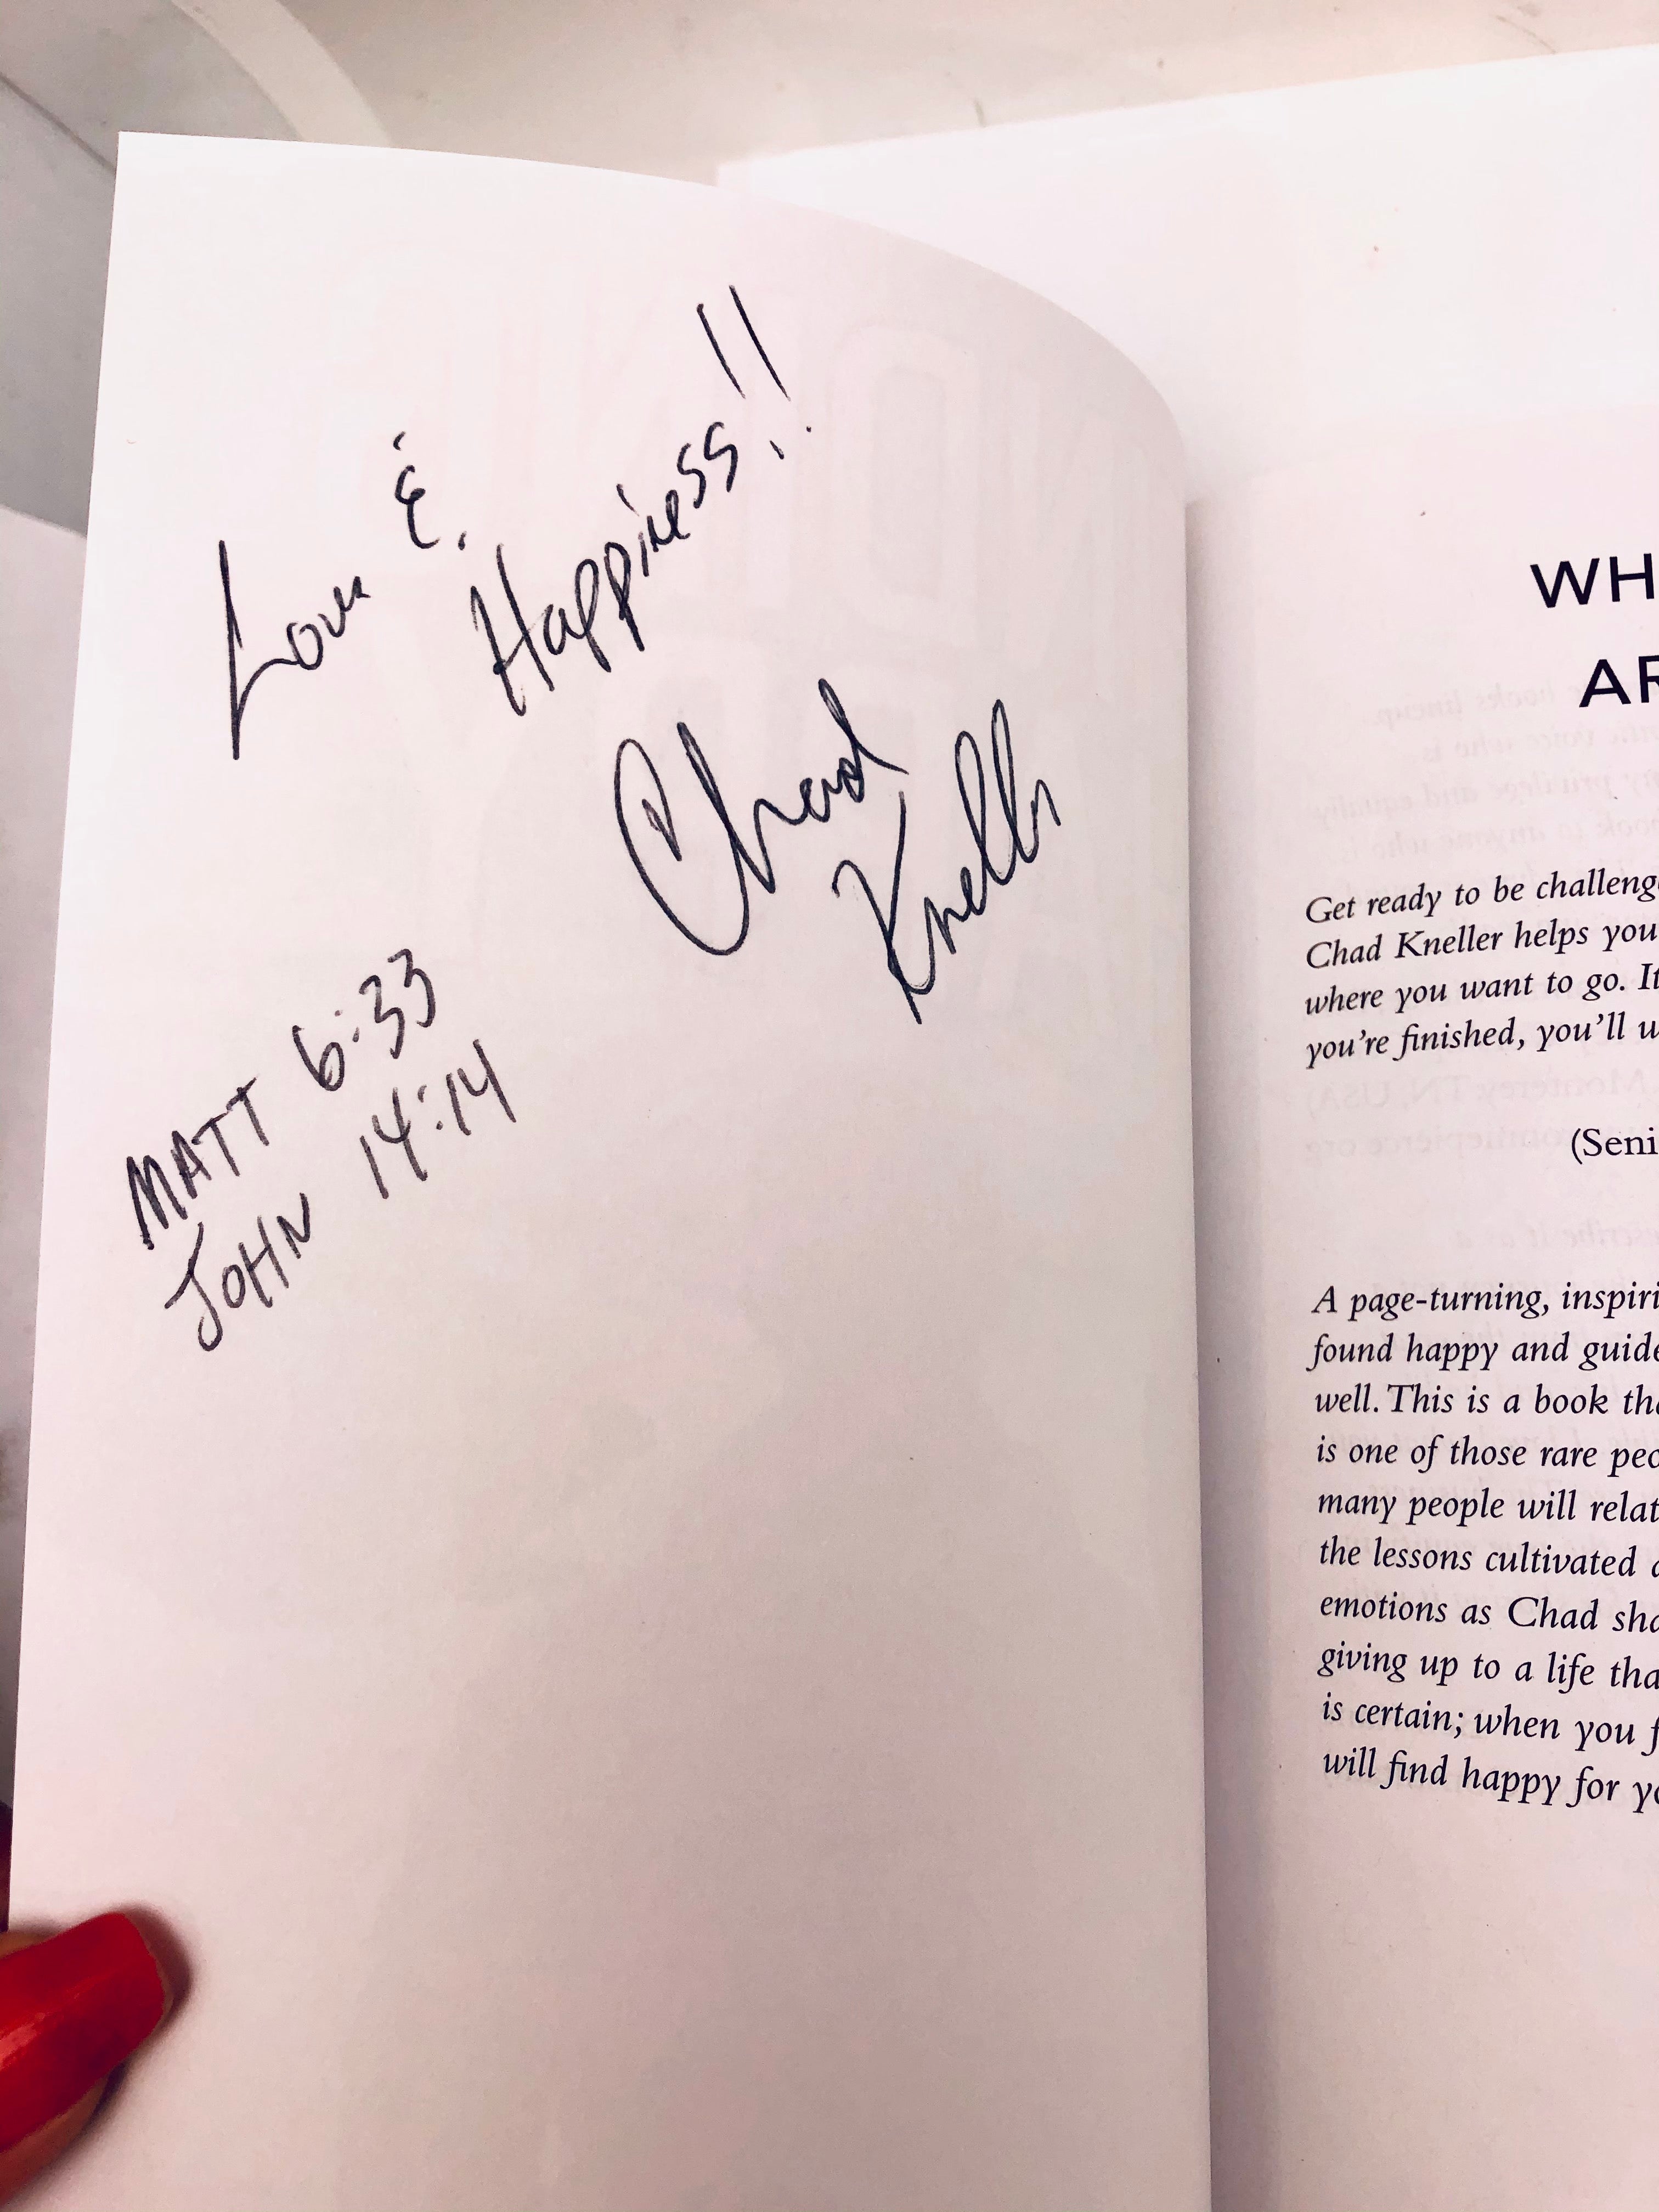 Love &
Happiness!!
Chad
Kneller
MATT 6:33
JOHN 14:14
WH
AR
Get ready to be challeng
Chad Kneller helps you
where you want to go. It
you're finished, you'll u
(Seni
A page-turning, inspiri
found happy and guide
well. This is a book tha
is one of those rare peo
many people will relat
the lessons cultivated a
emotions as Chad sha
giving up to a life tha
is certain; when you f
will find happy for yo